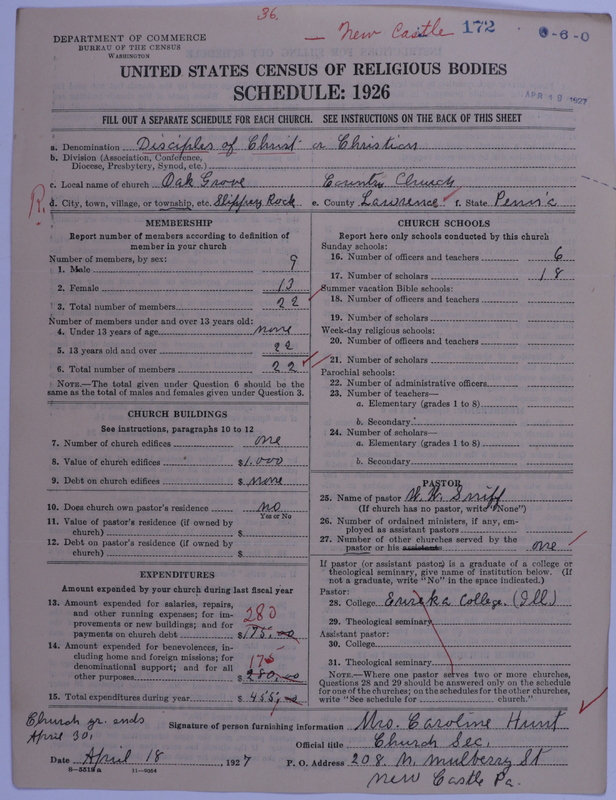 36.
— New Castle 172 0-6-0
DEPARTMENT OF COMMERCE
BUREAU OF THE CENSUS
WASHINGTON
UNITED STATES CENSUS OF RELIGIOUS BODIES
SCHEDULE: 1926
APR 19 1927
FILL OUT A SEPARATE SCHEDULE FOR EACH CHURCH. SEE INSTRUCTIONS ON THE BACK OF THIS SHEET
a. Denomination Disciples of Christ or Christian
b. Division (Association, Conference, Diocese, Presbytery, Synod, etc.)
c. Local name of church Oak Grove Country Church
R. d. City, town, village, or township, etc. Slippery Rock e. County Lawrence f. State Penn'a
MEMBERSHIP
Report number of members according to definition of
member in your church
Number of members, by sex:
1. Male 9
2. Female 13
3. Total number of members 22
Number of members under and over 13 years old:
4. Under 13 years of age none
5. 13 years old and over 22
6. Total number of members 22
NOTE.—The total given under Question 6 should be the
same as the total of males and females given under Question 3.
CHURCH BUILDINGS
See instructions, paragraphs 10 to 12
7. Number of church edifices one
8. Value of church edifices $1.000
9. Debt on church edifices $ none
10. Does church own pastor's residence no
Yes or No
11. Value of pastor's residence (if owned by
church) $
12. Debt on pastor's residence (if owned by
church) $
EXPENDITURES
Amount expended by your church during last fiscal year
13. Amount expended for salaries, repairs,
and other running expenses; for im-
provements or new buildings; and for
payments on church debt 280 $175.00
14. Amount expended for benevolences, in-
cluding home and foreign missions; for
denominational support; and for all
other purposes 175 $280.00
15. Total expenditures during year $455.00
CHURCH SCHOOLS
Report here only schools conducted by this church
Sunday schools:
16. Number of officers and teachers 6
17. Number of scholars 18
Summer vacation Bible schools:
18. Number of officers and teachers
19. Number of scholars
Week-day religious schools:
20. Number of officers and teachers
21. Number of scholars
Parochial schools:
22. Number of administrative officers
23. Number of teachers—
a. Elementary (grades 1 to 8)
b. Secondary
24. Number of scholars—
a. Elementary (grades 1 to 8)
b. Secondary
PASTOR
25. Name of pastor W. W. Sniff
(If church has no pastor, write "None")
26. Number of ordained ministers, if any, em-
ployed as assistant pastors
27. Number of other churches served by the
pastor or his assistants one
If pastor (or assistant pastor) is a graduate of a college or
theological seminary, give name of institution below. (If
not a graduate, write "No" in the space indicated.)
Pastor:
28. College Eureka College (Ill)
29. Theological seminary
Assistant pastor:
30. College
31. Theological seminary
NOTE.—Where one pastor serves two or more churches,
Questions 28 and 29 should be answered only on the schedule
for one of the churches; on the schedules for the other churches,
write "See schedule for church."
Church yr. ends
April 30,
Signature of person furnishing information Mrs. Caroline Hunt
Official title Church Sec.
Date April 18, 1927 P. O. Address 208 N. Mulberry St
8-5319a 11-9084
New Castle Pa.